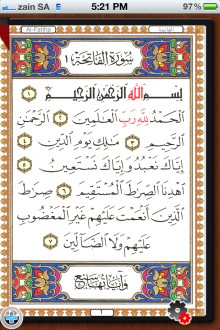 zain SA E 5:21 PM
Al-Fatiha الفاتحة
سُورَةُ الْفَاتِحَةِ ١
بِسْمِ اللَّهِ الرَّحْمَٰنِ الرَّحِيمِ ١
الْحَمْدُ لِلَّهِ رَبِّ الْعَٰلَمِينَ ٢ الرَّحْمَٰنِ
الرَّحِيمِ ٣ مَٰلِكِ يَوْمِ الدِّينِ ٤
إِيَّاكَ نَعْبُدُ وَإِيَّاكَ نَسْتَعِينُ ٥
اهْدِنَا الصِّرَٰطَ الْمُسْتَقِيمَ ٦ صِرَٰطَ
الَّذِينَ أَنْعَمْتَ عَلَيْهِمْ غَيْرِ الْمَغْضُوبِ
عَلَيْهِمْ وَلَا الضَّالِّينَ ٧
وَآيَاتُهَا سَبْعٌ
١